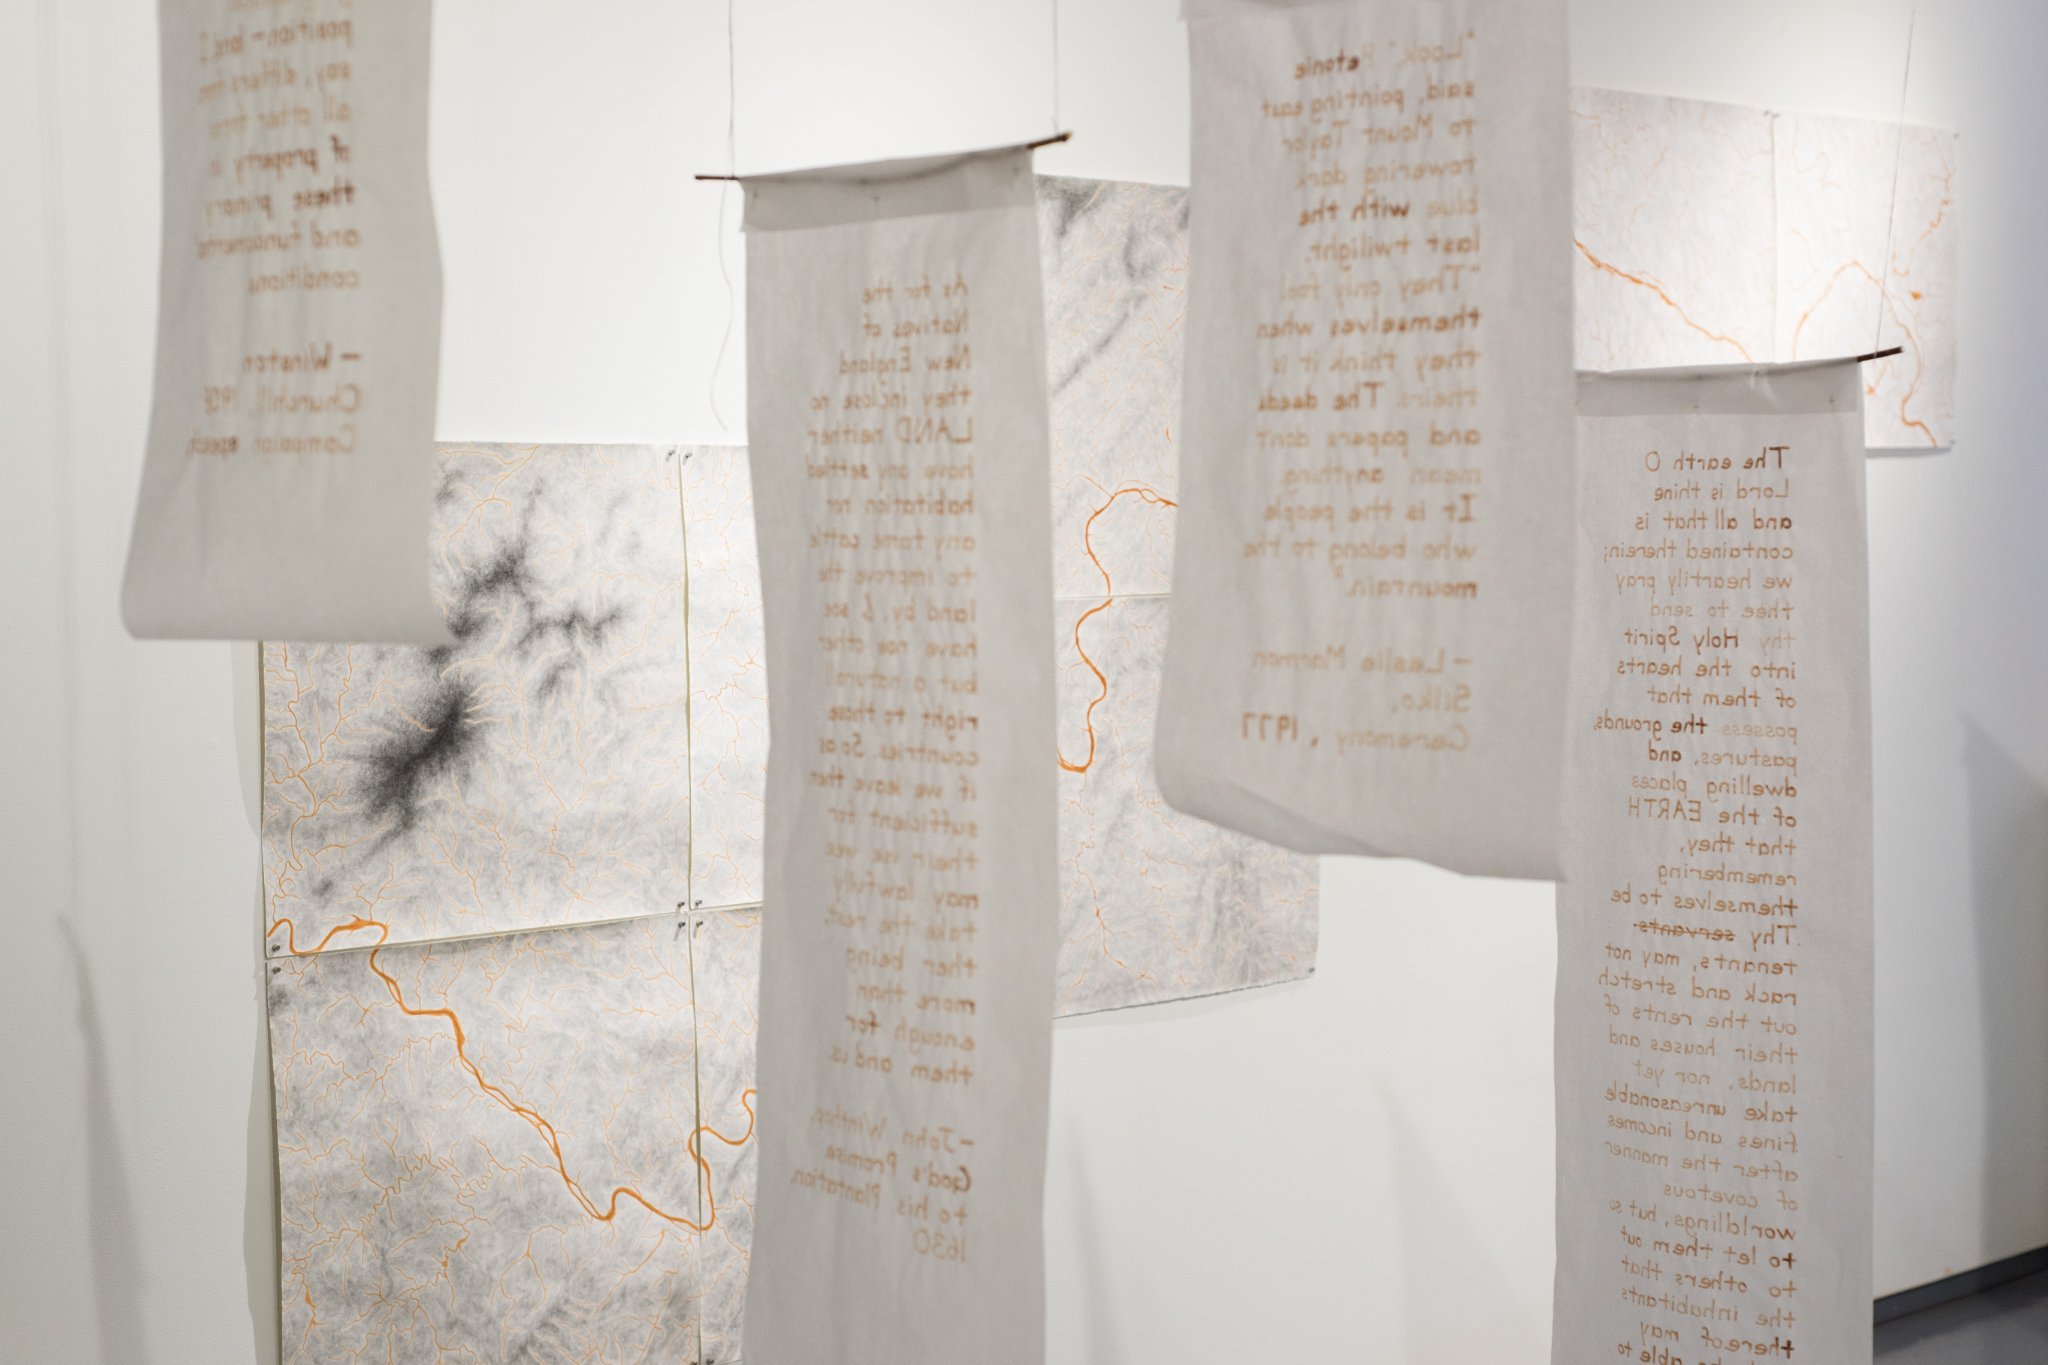 position—land, I
say, differs from
all other forms
of property in
these primary
and fundamental
conditions
— Winston
Churchill, 1909
Campaign speech
As for the
Natives of
New England
they inclose no
LAND neither
have any settled
habitation nor
any tame cattle
to improve the
land by, & soe
have noe other
but a naturall
right to those
countries. So as
if we leave them
sufficient for
their use wee
may lawfully
take the rest,
ther being
more than
enough for
them and us
— John Winthop,
God's Promise
to his Plantation,
1630
"Look," Betonie
said, pointing east
to Mount Taylor
towering dark
blue with the
last twilight.
"They only fool
themselves when
they think it is
theirs. The deeds
and papers don't
mean anything.
It is the people
who belong to the
mountain."
— Leslie Marmon
Silko,
Ceremony, 1977
The earth O
Lord is thine
and all that is
contained therein;
we heartily pray
thee to send
thy Holy Spirit
into the hearts
of them that
possess the grounds,
pastures, and
dwelling places
of the EARTH
that they,
remembering
themselves to be
Thy servants
tenants, may not
rack and stretch
out the rents of
their houses and
lands, nor yet
take unreasonable
fines and incomes
after the manner
of covetous
worldlings, but so
to let them out
to others that
the inhabitants
thereof may
be able to